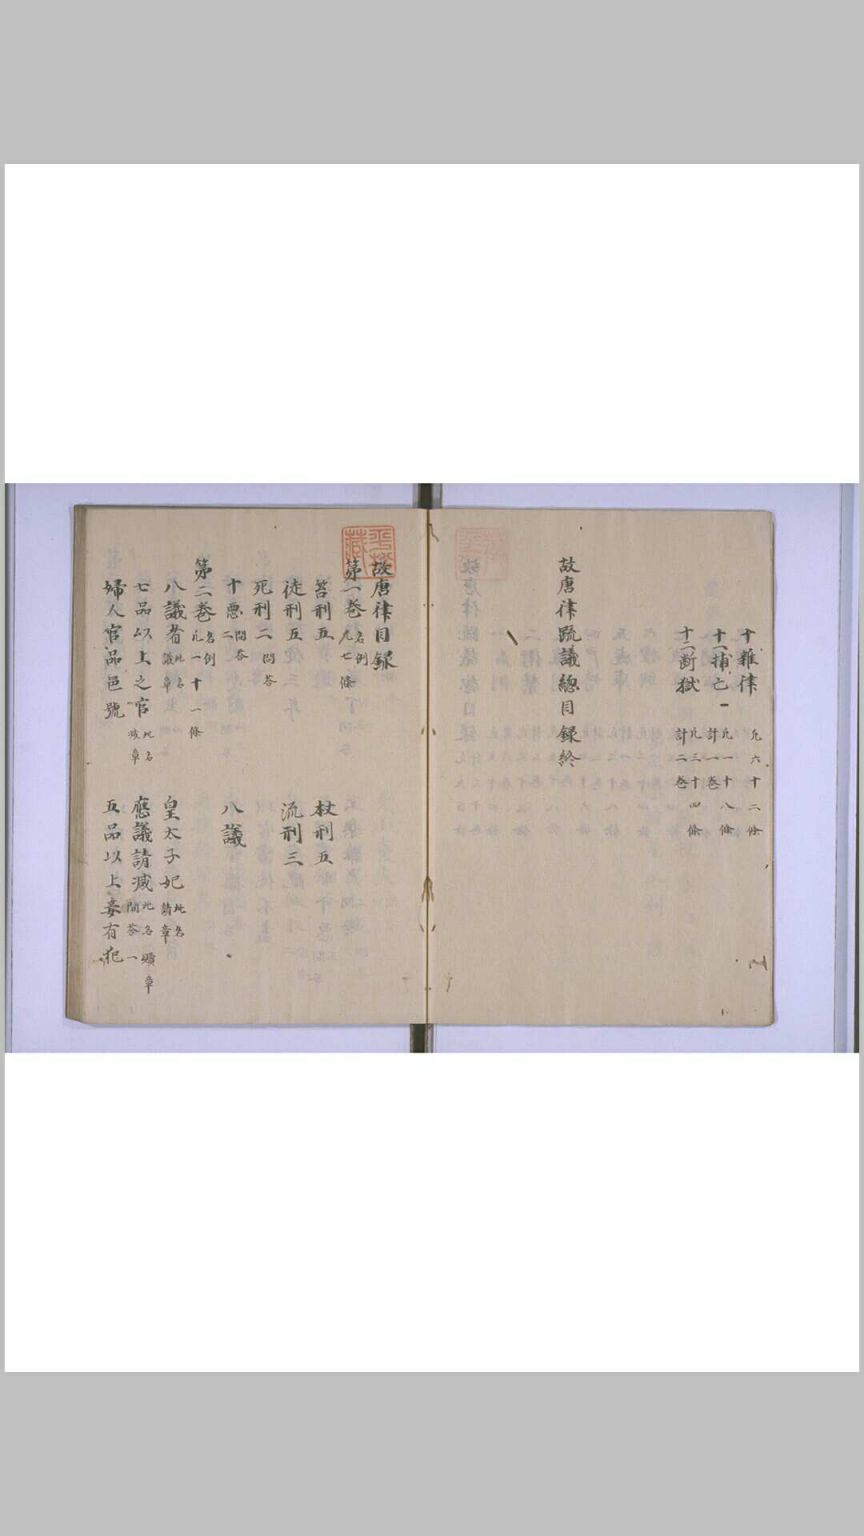 十雜律 凢六十二條
十一捕亡 凢一十八條 計一巻
十二断獄 凢三十四條 計二巻
故唐律䟽議總目録終
故唐律目録
第一巻 名例 凢七條
笞刑五 杖刑五
徒刑五 流刑三
死刑二 問荅
十悪 問荅二 八議
第二巻 名例 凢一十一條
八議者 此名議章 皇太子妃 此名請章
七品以上之官 此名减章 應議請减 此名贖章 問荅一
婦人官品邑號 五品以上妾有犯